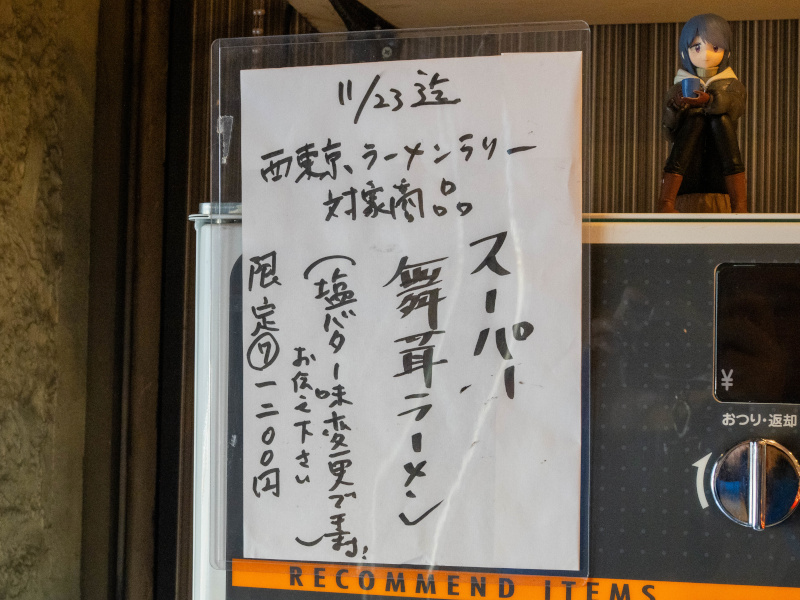 11/23迄
西東京、ラーメンラリー
対象商品
スーパー
舞茸ラーメン
(塩バター味変更できます!)
お伝え下さい
限定⑦一二〇〇円
¥
おつり・返却
RECOMMEND iTEMS